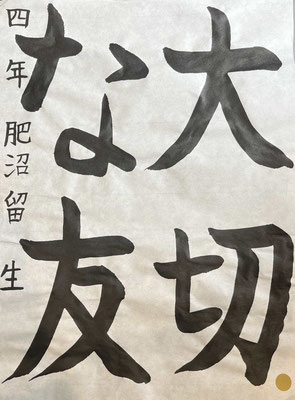 大切
な友
四年肥沼留生